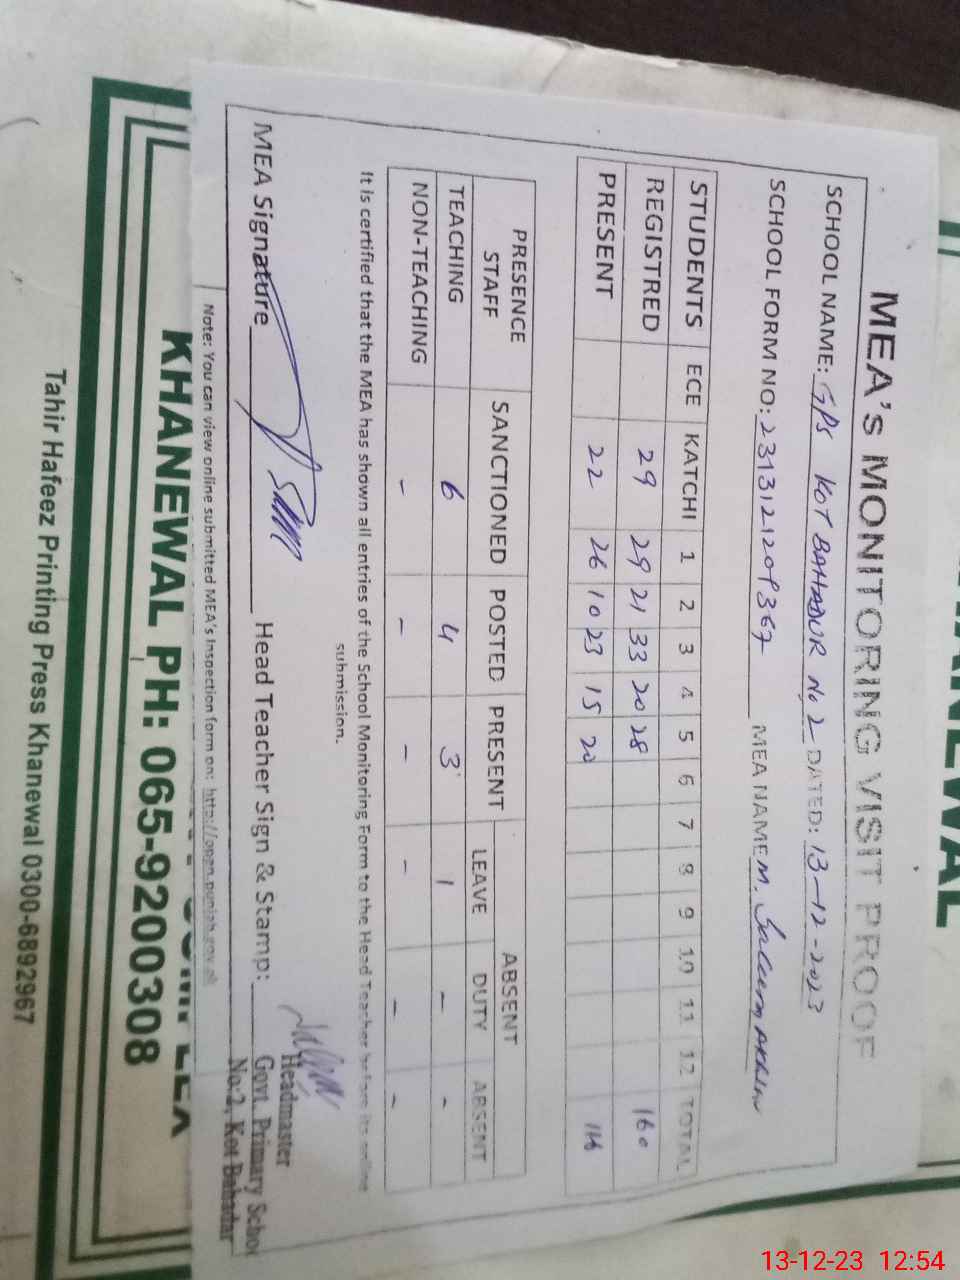 MEA's MONITORING VISIT PROOF
SCHOOL NAME: GPS KOT BAHADUR No 2 DATED: 13-12-2023
SCHOOL FORM NO: 2313121209367 MEA NAME M. Saleem Akhtar
STUDENTS ECE KATCHI 1 2 3 4 5 6 7 8 9 10 11 12 TOTAL
REGISTRED 29 29 21 33 20 28 160
PRESENT 22 26 10 23 15 20 116
PRESENCE STAFF SANCTIONED POSTED PRESENT ABSENT
LEAVE DUTY ABSENT
TEACHING 6 4 3 1 - -
NON-TEACHING - - - - - -
It is certified that the MEA has shown all entries of the School Monitoring Form to the Head Teacher before its online
submission.
MEA Signature Head Teacher Sign & Stamp:
Headmaster
Govt. Primary Schoo
No:2, Kot Bahadur
Note: You can view online submitted MEA's Inspection form on: http://open.punjab.gov.pk
KHANEWAL PH: 065-9200308
Tahir Hafeez Printing Press Khanewal 0300-6892967
13-12-23 12:54